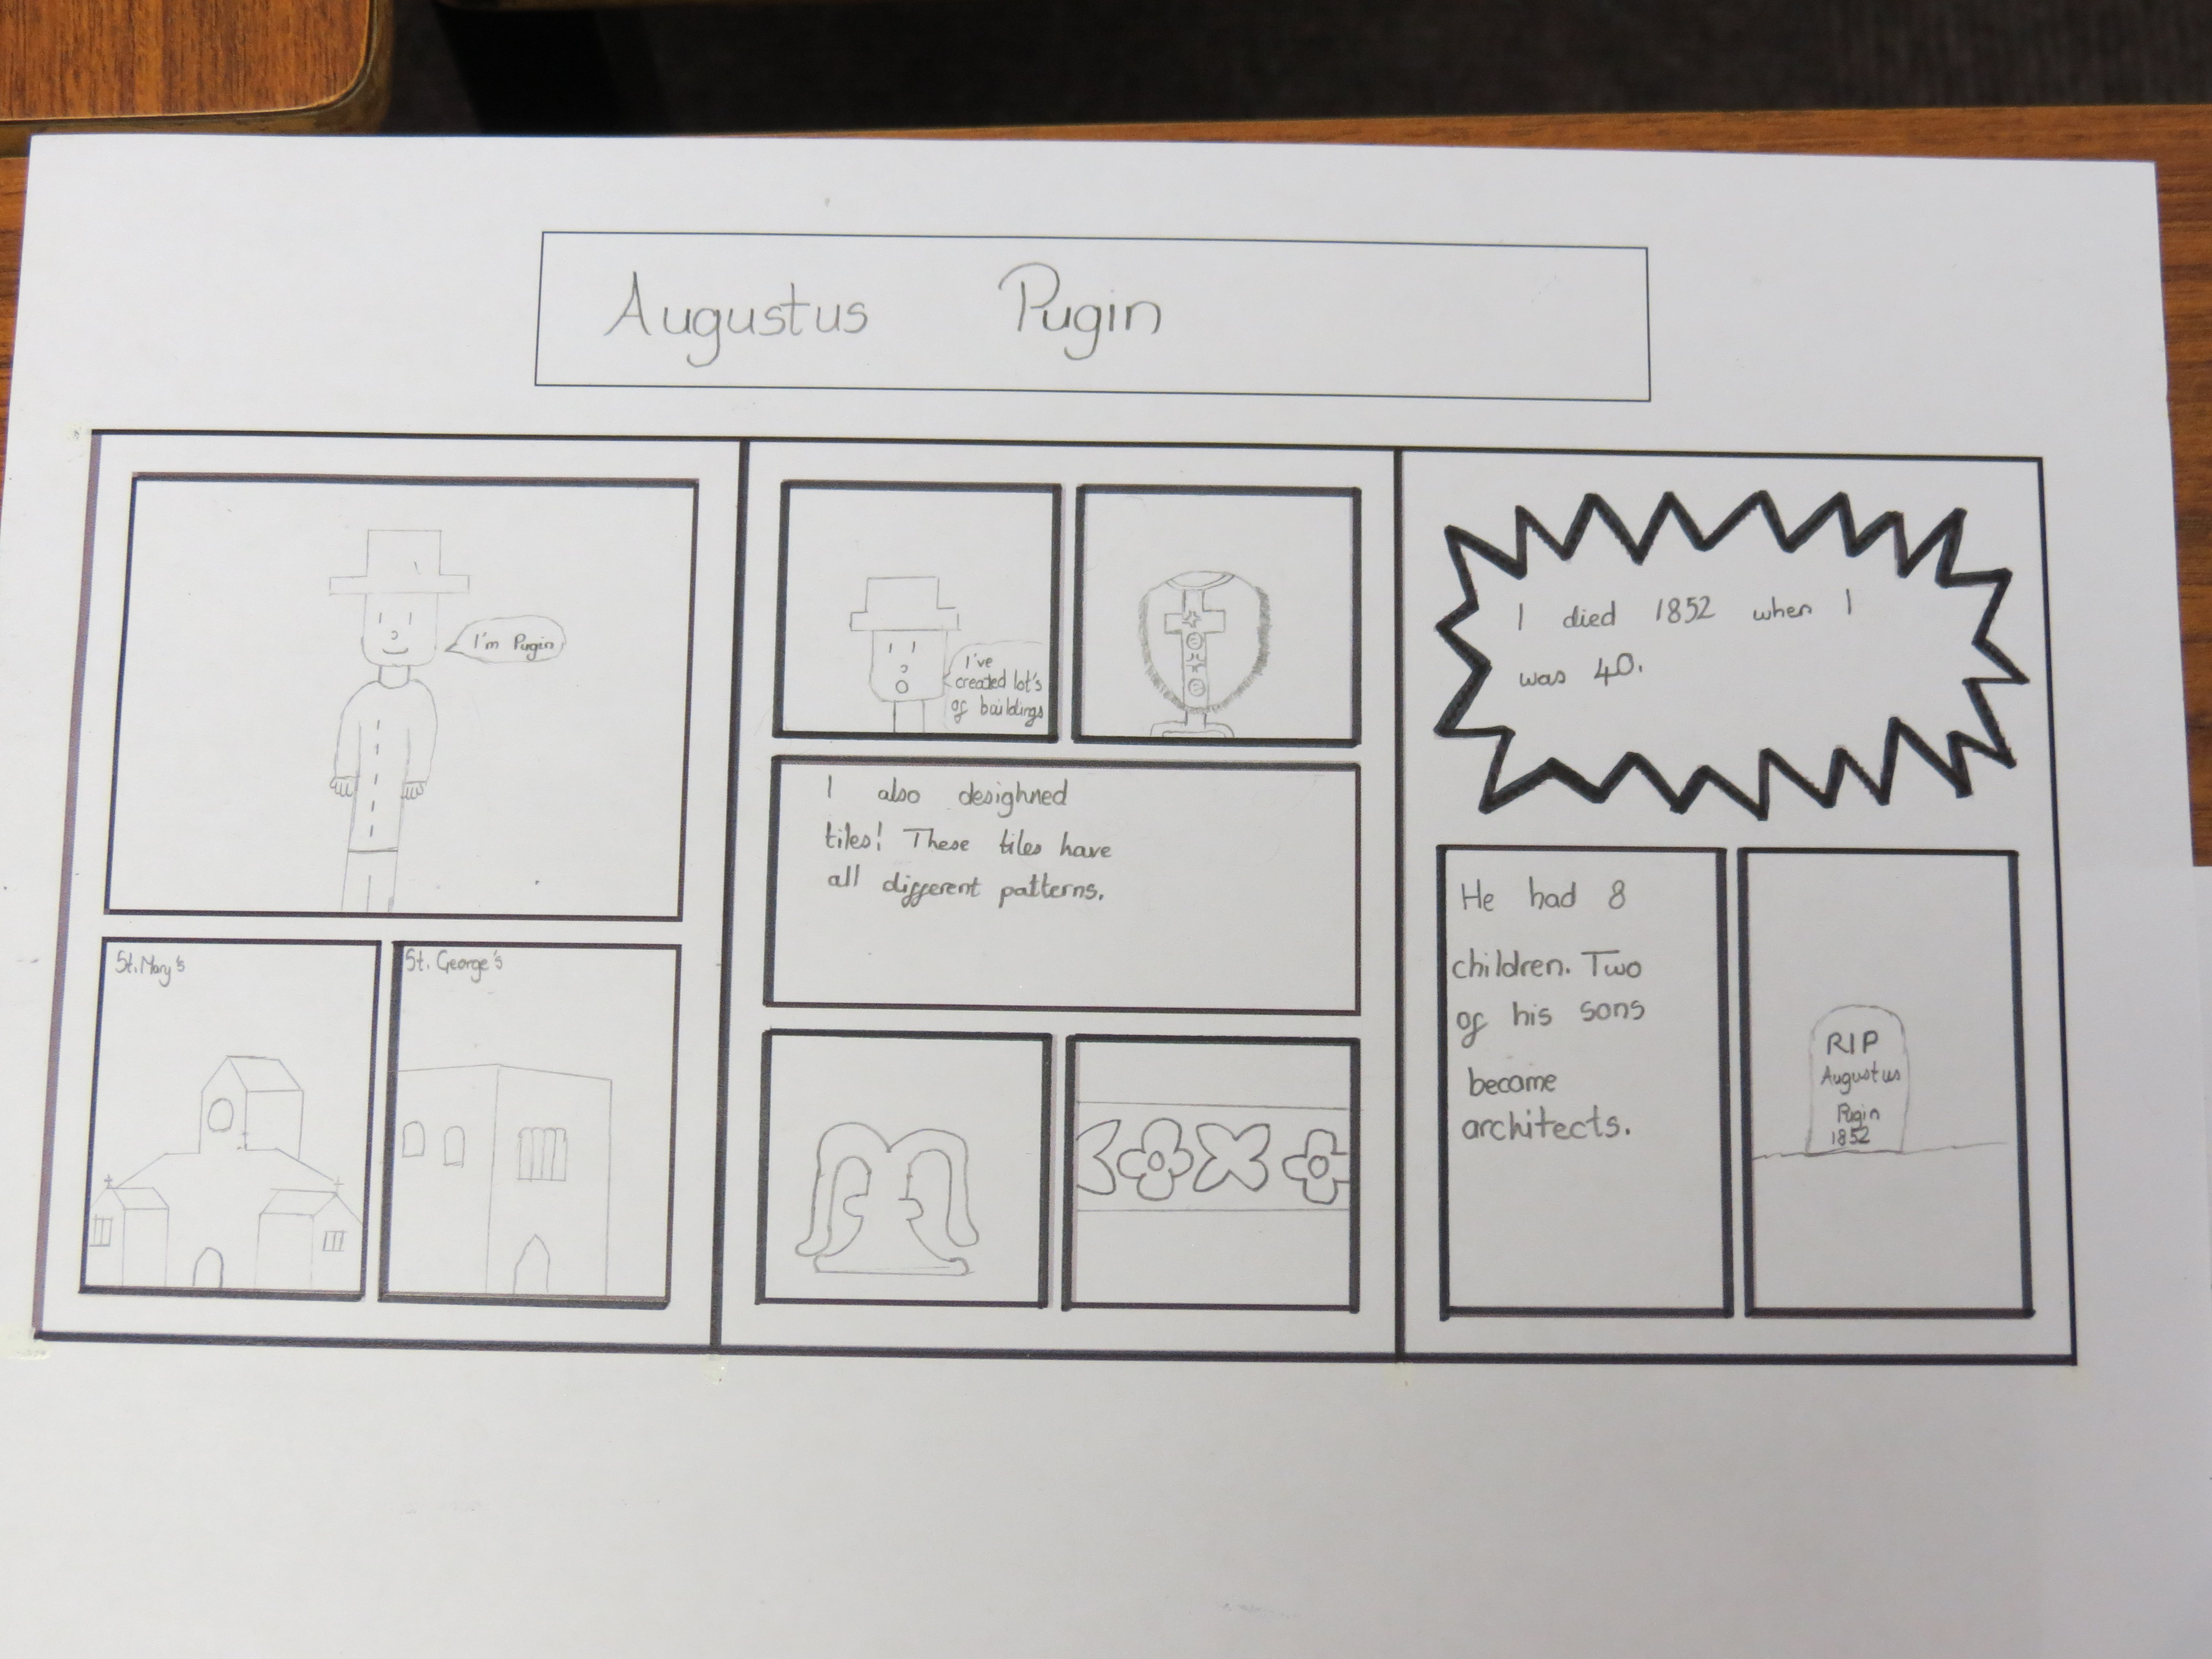 Augustus Pugin
I'm Pugin
St. Mary's
St. George's
I've
created lot's
of buildings
I also desighned
tiles! These tiles have
all different patterns.
I died 1852 when I
was 40.
He had 8
children. Two
of his sons
became
architects.
RIP
Augustus
Pugin
1852